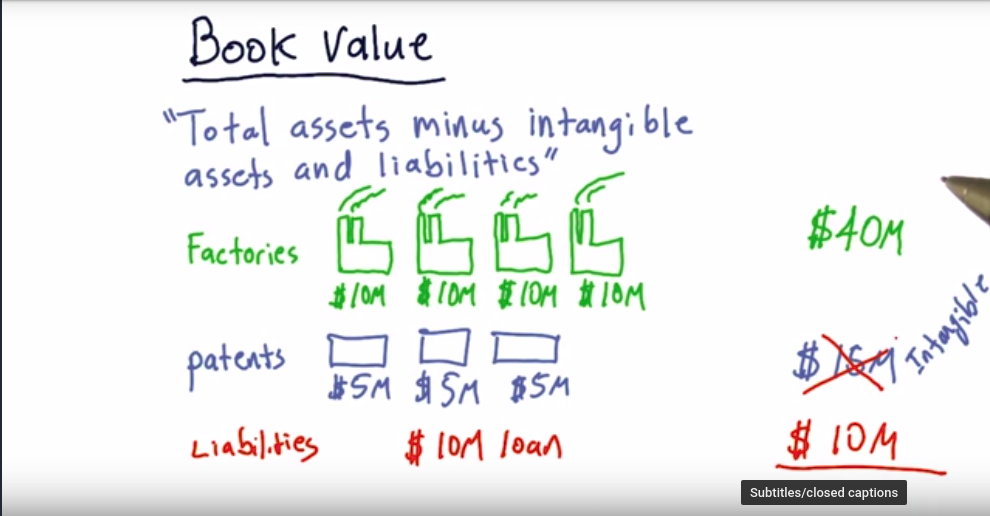 Book Value
"Total assets minus intangible
assets and liabilities"
Factories
$10M $10M $10M $10M
$40M
patents
$5M $5M $5M
$15M
Intangible
Liabilities $10M loan
$10M
Subtitles/closed captions